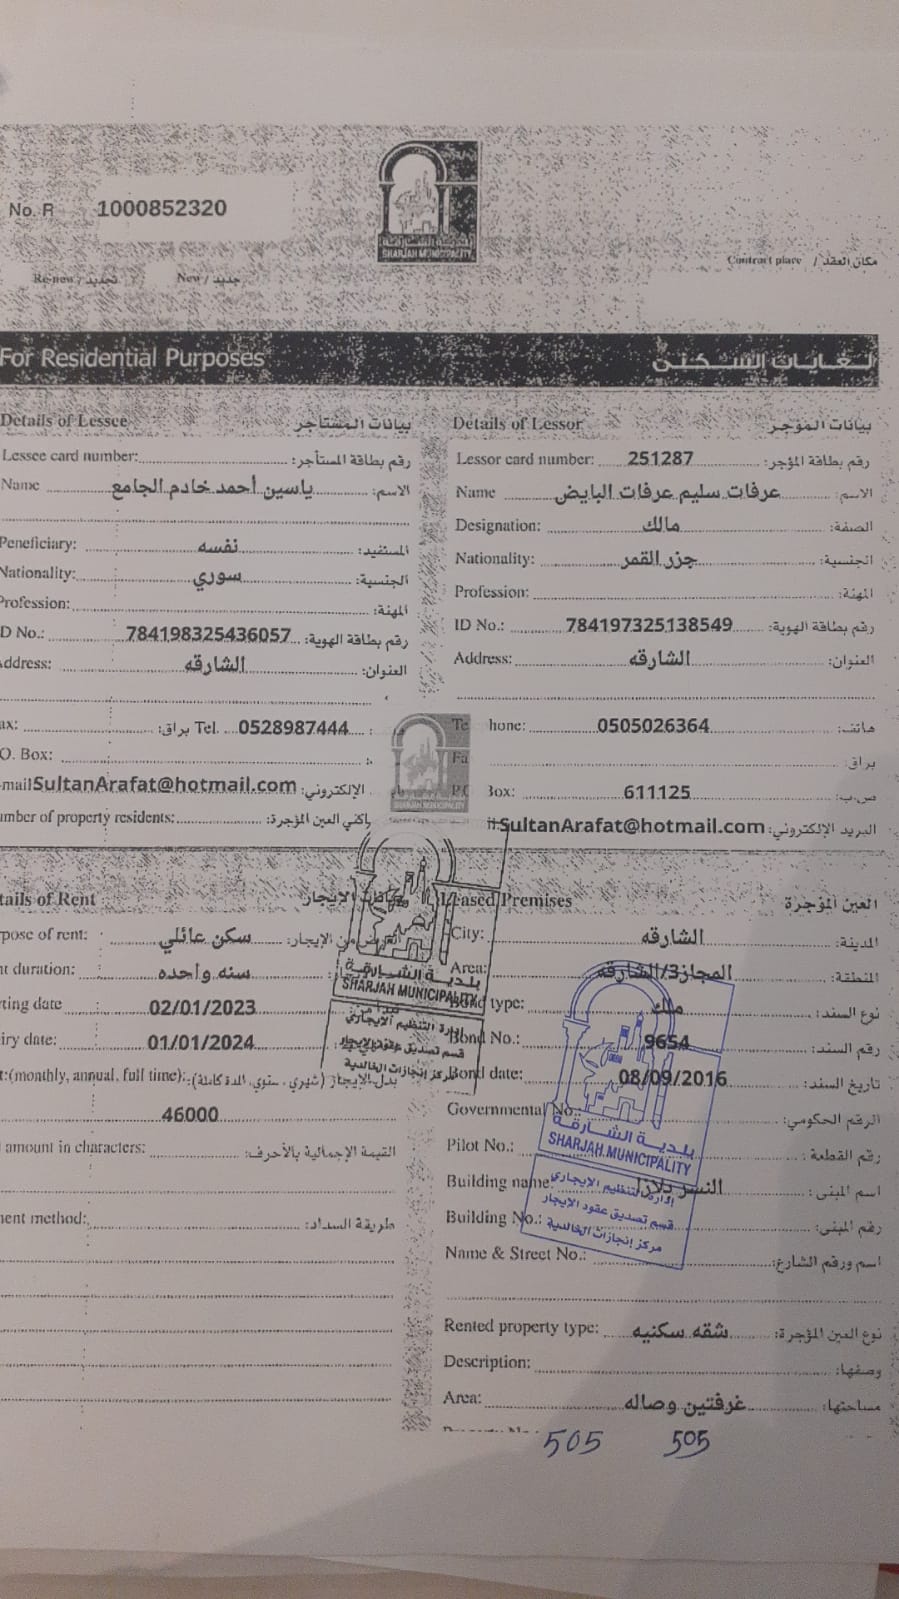 No. R 1000852320
SHARJAH MUNICIPALITY
Contract place / مكان العقد
Re-new / تجديد New / جديد
For Residential Purposes لغايات السكنى
Details of Lessee بيانات المستأجر
Lessee card number: رقم بطاقة المستأجر:
Name ياسين أحمد خادم الجامع الاسم:
Peneficiary: نفسه المستفيد:
Nationality: سوري الجنسية:
Profession: المهنة:
D No.: 784198325436057 رقم بطاقة الهوية:
ddress: الشارقه العنوان:
ax: براق: Tel. 0528987444
O. Box:
-mail SultanArafat@hotmail.com الإلكتروني:
umber of property residents: اكني العين المؤجرة:
Details of Lessor بيانات المؤجر
Lessor card number: 251287 رقم بطاقة المؤجر:
Name عرفات سليم عرفات البايض الاسم:
Designation: مالك الصفة:
Nationality: جزر القمر الجنسية:
Profession: المهنة:
ID No.: 784197325138549 رقم بطاقة الهوية:
Address: الشارقه العنوان:
Te hone: 0505026364 هاتف:
Fa براق:
P.O Box: 611125 ص.ب:
SultanArafat@hotmail.com البريد الإلكتروني:
SHARJAH MUNICIPALITY
tails of Rent بيانات الإيجار
pose of rent: سكن عائلي الغرض من الإيجار:
nt duration: سنه واحده
ting date 02/01/2023
iry date: 01/01/2024
t:(monthly, annual, full time): بدل الإيجار (شهري ، سنوي، المدة كاملة):
46000
amount in characters: القيمة الإجمالية بالأحرف:
ment method: طريقة السداد:
بلدية الشارقة
SHARJAH MUNICIPALITY
إدارة التنظيم الإيجاري
قسم تصديق عقود الإيجار
مركز إنجازات الخالدية
Leased Premises العين المؤجرة
City: الشارقه المدينة:
Area: المجاز3/الشارقه المنطقة:
Bond type: ملك نوع السند:
Bond No.: 9654 رقم السند:
Bond date: 08/09/2016 تاريخ السند:
Governmental No. الرقم الحكومي:
Pilot No.: رقم القطعة:
Building name: النسر بلازا اسم المبنى:
Building No.: رقم المبنى:
Name & Street No.: اسم ورقم الشارع:
Rented property type: شقه سكنيه نوع العين المؤجرة:
Description: وصفها:
Area: غرفتين وصاله مساحتها:
505 505
بلدية الشارقة
SHARJAH MUNICIPALITY
إدارة التنظيم الإيجاري
قسم تصديق عقود الإيجار
مركز إنجازات الخالدية